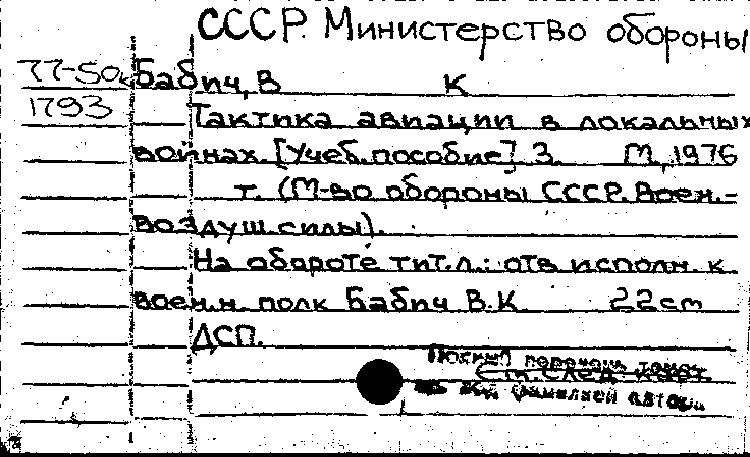 СССР. Министерство обороны
77-50к Бабич, В К
1793 Тактика авиации в локальных
войнах. [Учеб. пособие] 3. М, 1976
т. (М-во обороны СССР. Воен.-
воздуш. силы).
На обороте тит. л.: отв исполн. к.
воен. н. полк Бабич В. К 22cm
ДСП.
См. след. карт.
фамилией автора